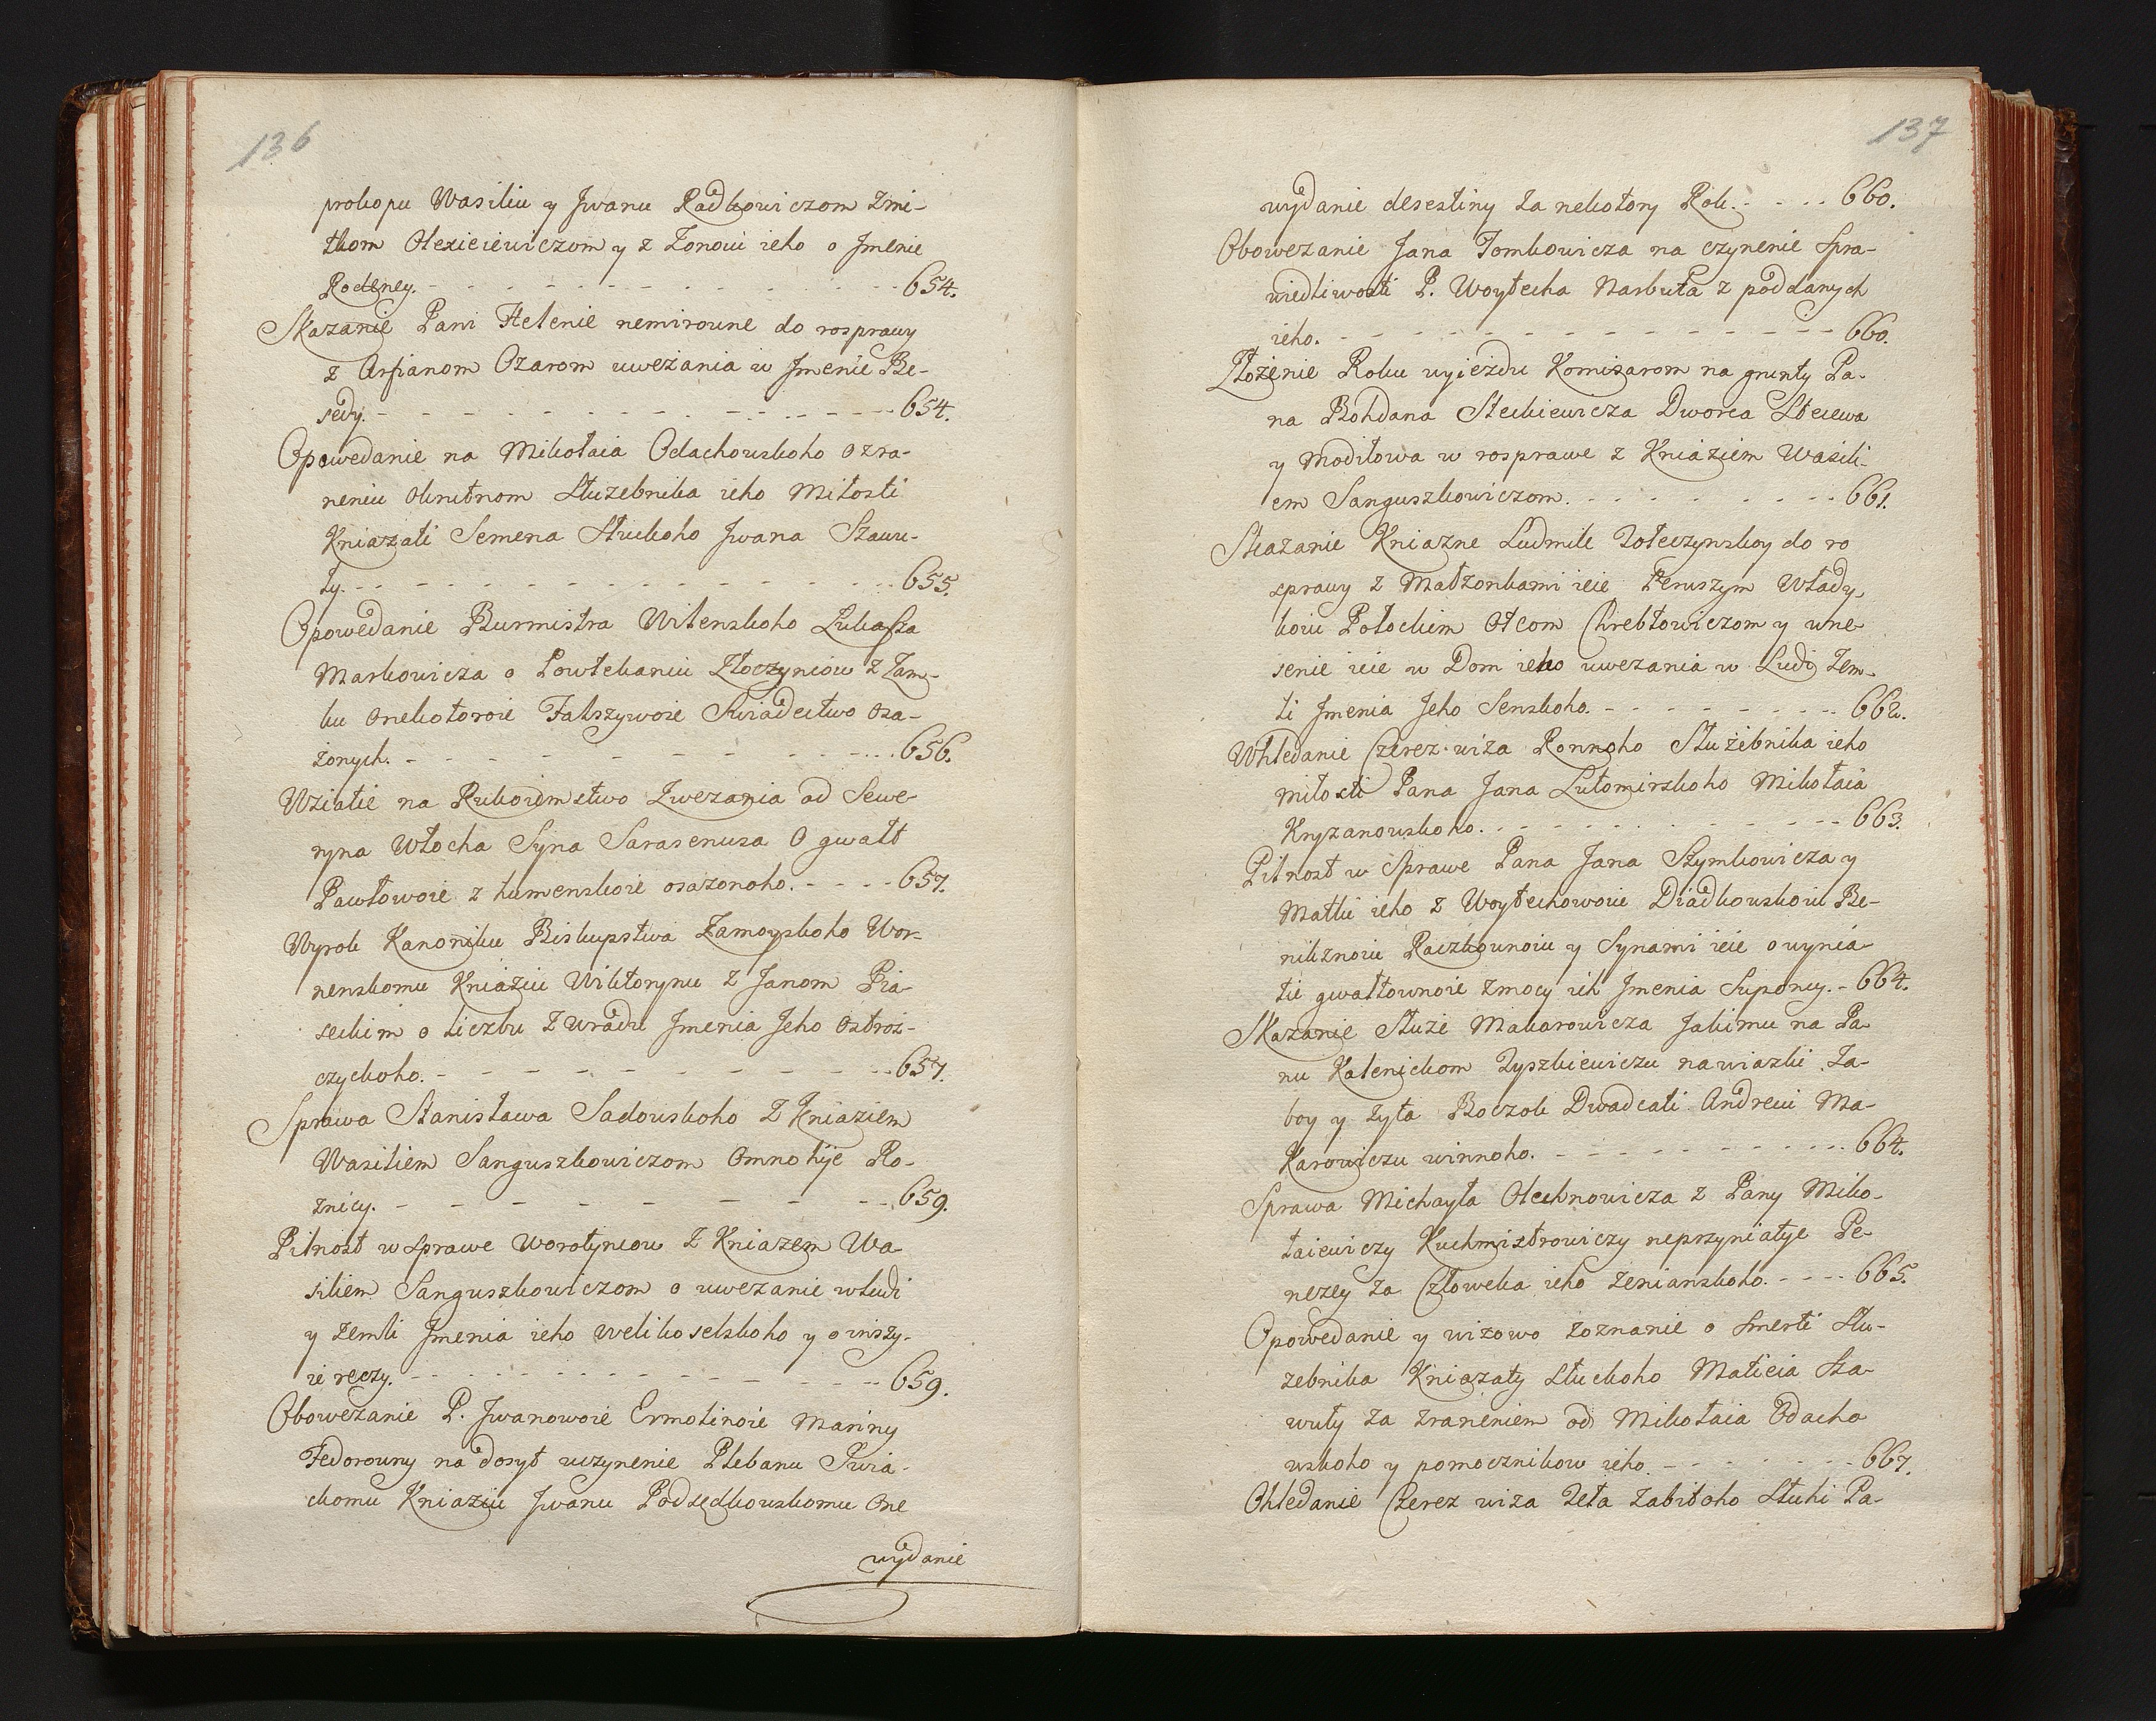 136
prokopu Wasiliu y Jwanu Radkowiczom Zmi-
tkom Olexieiewiczom y z Zonoiu ieho o Jmenie
Rodeney. - - - 654.
Skazanie Pani Helenie nemirowne do rosprawy
z Arfianom Ozarom uwezania w Jmenie Be-
sedy. - - - 654.
Opowedanie na Mikołaia Odachowskoho o zra-
neniu okrutnom Służebnika ieho Miłosti
Kniazati Semena Słuckoho Jwana Szawu-
ły. - - - 655.
Opowedanie Burmistra Wilenskoho Łukasza
Markowicza o Powtekaniu Złoczyniow z Zam-
ku o nekotoroie Falszywoie Swiadectwo osa-
żonych. - - - 656.
Wziatie na Rukoiemstwo Zwezania od Sewe-
ryna Włocha Syna Sarasenusa O gwałt
Pawłowoie z humenskoie osazonoho. - - - 657.
Wyrok Kanoniku Biskupstwa Zamoyskoho Wor-
nenskomu Kniaziu Wiktorynu z Janom Pia-
seckim o liczbu z Uradu Jmenia Jeho Ostroż-
czyckoho. - - - 657.
Sprawa Stanisława Sadowskoho z Kniaziem
Wasiliem Sanguszkowiczom O mnohije Ro-
znicy. - - - 659.
Pilnost w sprawe Worotyncow z Kniazem Wa-
siliem Sanguszkowiczom o uwezanie w ludi
y zemli Jmenia ieho welikoselskoho y o inszy-
ie reczy. - - - 659.
Obowezanie P. Jwanowoie Ermolinoie Mariny
Fedorowny na dosyt uczynenie Plebanu Swia-
ckomu Kniaziu Jwanu Podsędkowskomu One
wydanie
137
wydanie desestiny za nekotory Rok. - - - 660.
Obowezanie Jana Tomkowicza na czynenie Spra-
wiedliwosti P. Woytecha Narbuta z poddanych
ieho. - - - 660.
Złożenie Roku wyiezdu Komisarom na grunty Pa-
na Bohdana Steckiewicza Dworca
y Modiłowa w rosprawe z Kniaziem Wasili-
em Sanguszkowiczom. - - - 661.
Skazanie Kniazne Ludmile Połeczynskoy do ro
sprawy z Małzonkami ieie Perwszym Włady-
koiu Połockim Otcom Chrebtowiczom y wne-
senie ieie w Dom ieho uwezania w Ludi Zem-
li Jmenia Jeho Senskoho. - - - 662.
Whledanie Czerez wiża Ronnoho Służebnika ieho
miłosti Pana Jana Lutomirskoho Mikołaia
Kryzanowskoho. - - - 663.
Pilnost w Sprawe Pana Jana Szymkowicza y
Matki ieho z Woytechowoie Diadkowskoiu Be-
niksznoiu Raczkownoiu y Synami ieie o wynia-
tie gwałtownoie z mocy ich Jmenia Suponey. - 664.
Skazanie Służe Makarowicza Jakimu na Pa-
nu Kalenickom Tyszkiewiczu nawiazki Za-
boy y żyta Boczok Dwadcati Andreiu Ma-
karowiczu winnoho. - - - 664.
Sprawa Michayła Olechnowicza z Pany Miko-
łaiewiczy Kuchmistrowiczy neprzyniatye Pe-
nezey za Człoweka ieho Zenianskoho. - - - 665.
Opowedanie y wizowo zoznanie o Smerti Słu-
zebnika Kniazaty Słuckoho Matieia Sza-
wuły za zraneniem od Mikołaia Odacho
wskoho y pomocznikow ieho. - - - 667.
Ohledanie Czerez wiża Teła Zabitoho Sługi Pa-